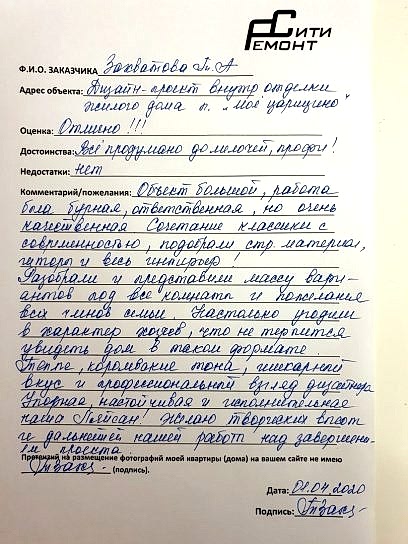 СИТИ
РЕМОНТ
Ф.И.О. ЗАКАЗЧИКА Захватова Т. А
Адрес объекта: Дизайн-проект внутр. отделки
жилого дома п. "Моё царицыно"
Оценка: Отлично !!!
Достоинства: Всё продумано до мелочей, профи!
Недостатки: нет
Комментарий/пожелания: Объект большой, работа
была бурная, ответственная, но очень
качественная Сочетание классики с
современностью, подобрали стр. материал,
шторы и весь интерьер!
Разобрали и представили массу вари-
антов под все комнаты и пожелания
всех членов семьи. Настолько угодили
в характер хозяев, что не терпится
увидеть дом в таком формате.
Тепло, королевские тона, шикарный
вкус и профессиональный взгляд дизайнера
Упорная, настойчивая и исполнительная
наша Ляйсан! Желаю творческих высот
и дальнейшей нашей работы над завершени-
ем проекта.
Претензий на размещение фотографий моей квартиры (дома) на вашем сайте не имею
(подпись).
Дата: 01.04.2020
Подпись: